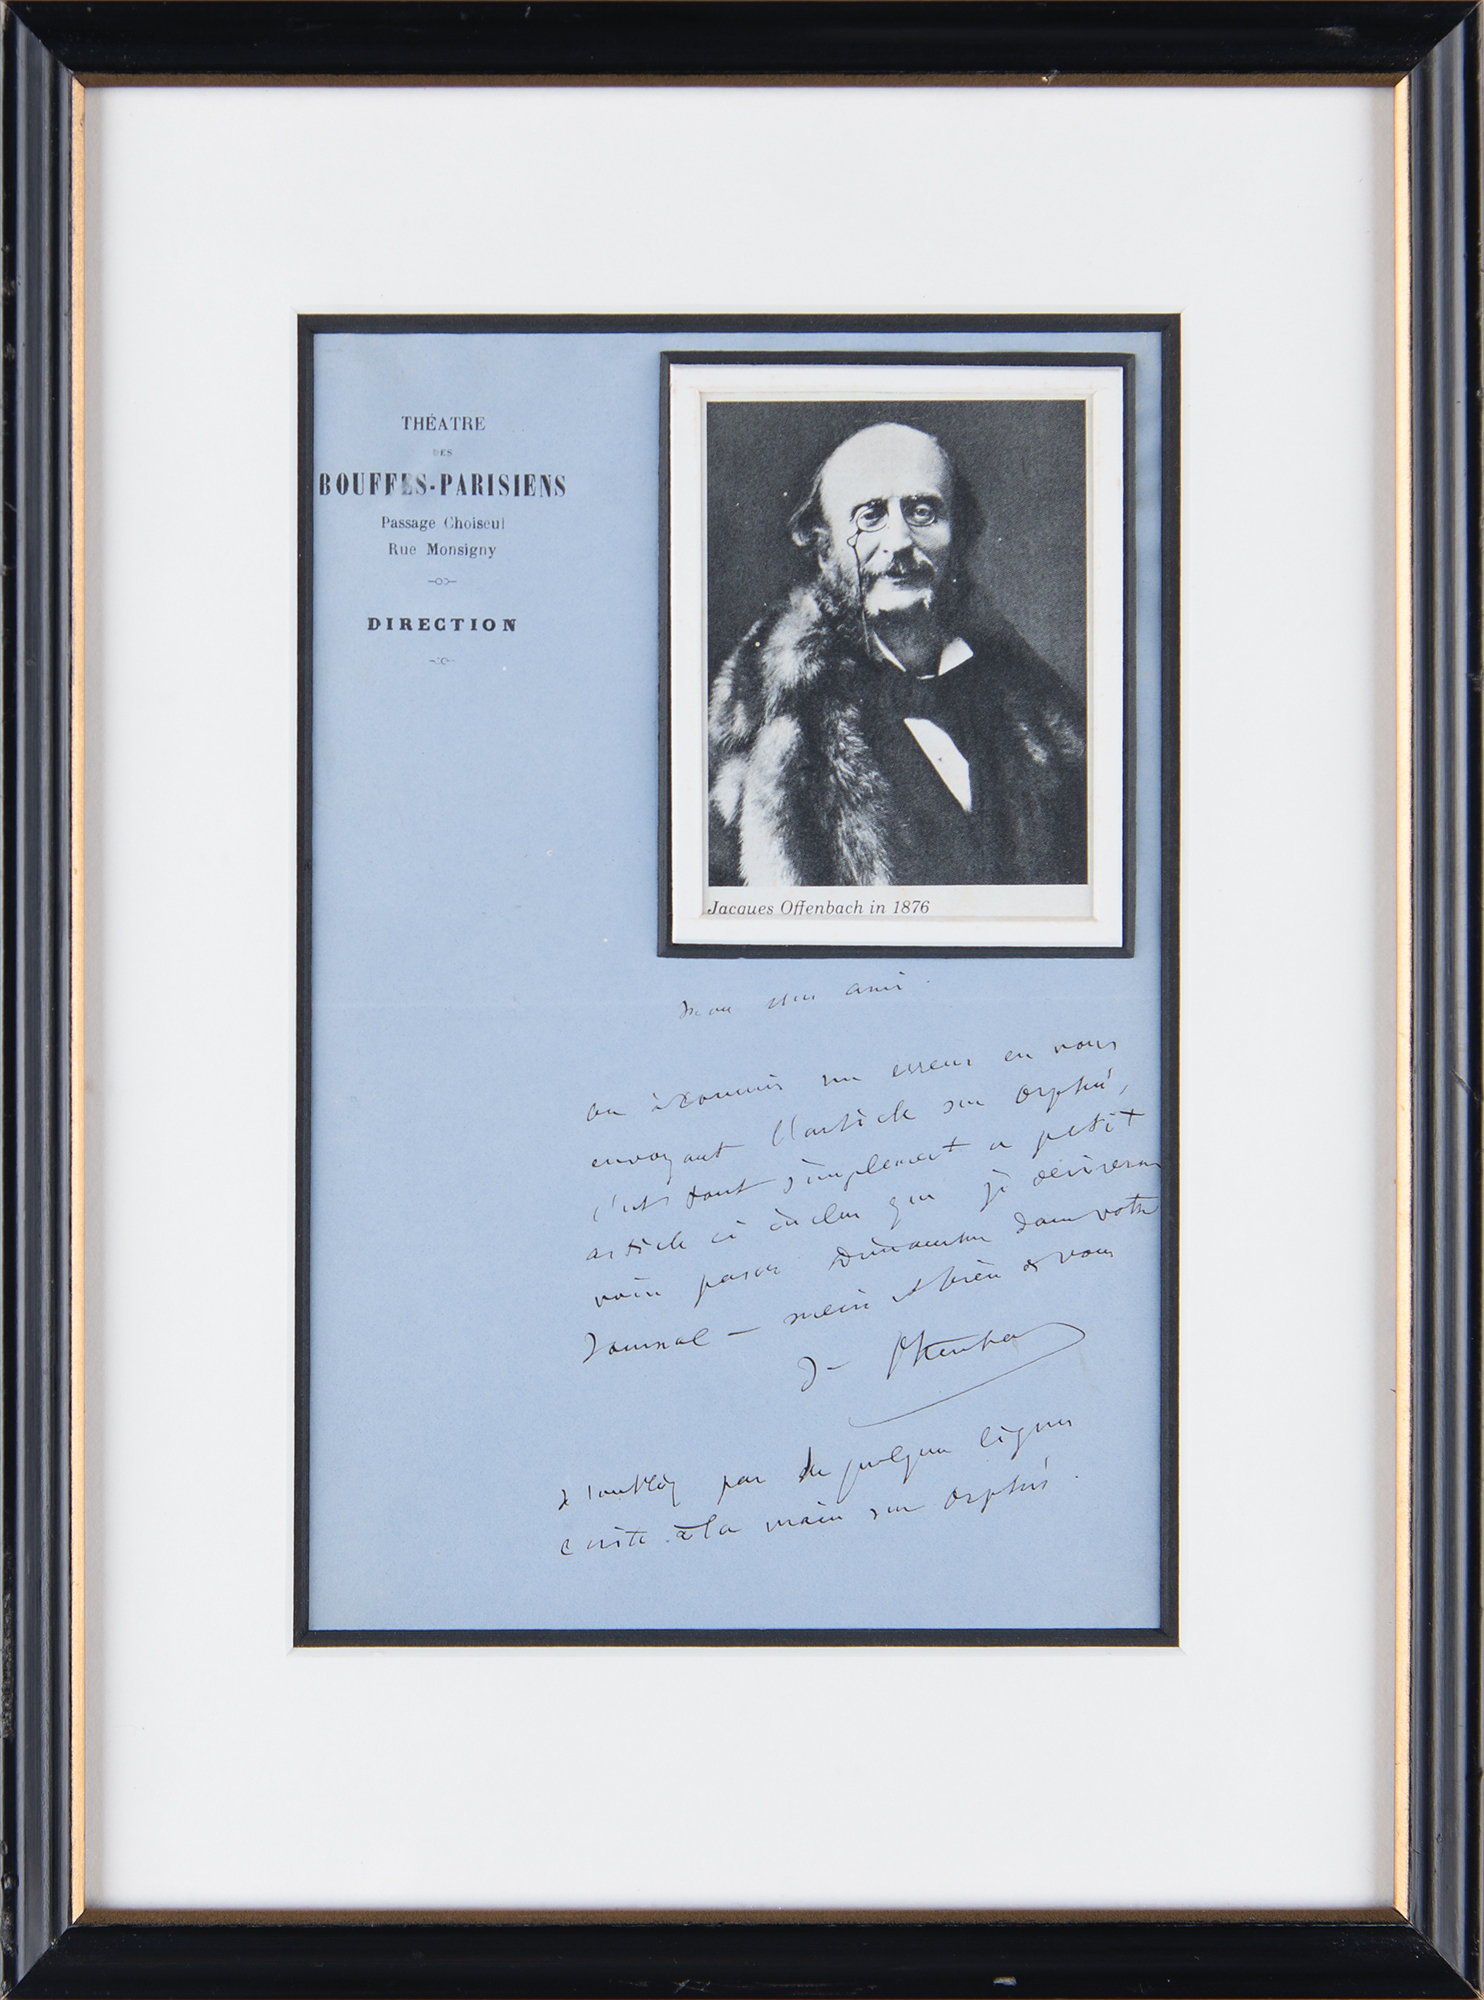 THÉATRE
DES
BOUFFES-PARISIENS
Passage Choiseul
Rue Monsigny
DIRECTION
Jacques Offenbach in 1876
Mon cher ami
on a commis une erreur en vous
envoyant l'article sur Orphée,
c'est tout simplement ce petit
article ci inclus que je désirerais
voir passer Dimanche dans votre
Journal – merci et bien à vous
J Offenbach
n'oubliez pas les quelques lignes
écrites à la main sur Orphée.